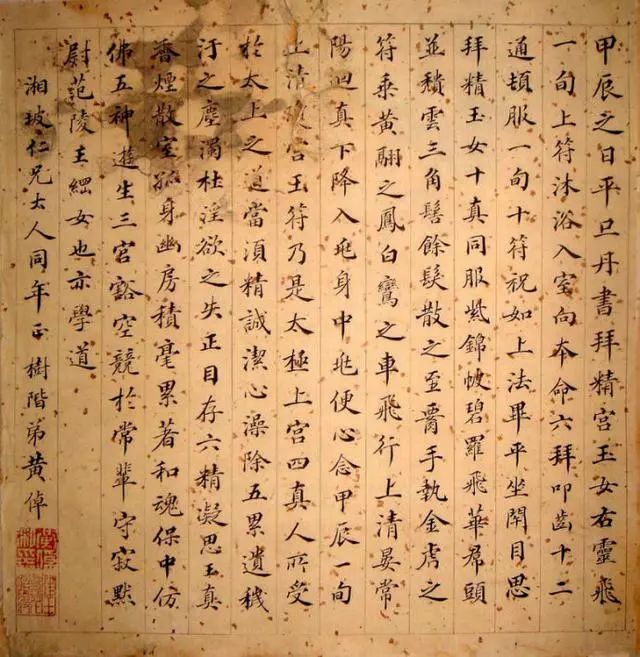 甲辰之日平旦丹書拜精宮玉女右靈飛
一旬上符沐浴入室向本命六拜叩齒十二
通頓服一旬十符祝如上法畢平坐閉目思
拜精玉女十真同服紫錦帔碧羅飛華帬頭
並頹雲三角髻餘髮散之至腰手執金虎之
符乘黃翮之鳳白鸞之車飛行上清晏常
陽迴真下降入兆身中兆便心念甲辰一旬
上清瓊宮玉符乃是太極上宮四真人所受
於太上之道當須精誠潔心澡除五累遺穢
汙之塵濁杜淫欲之失正目存六精凝思玉真
香煙散室孤身幽房積毫累著和魂保中仿
佛五神遊生三宮豁空競於常輩守寂默
尉范陵王綱女也亦學道
湘坡仁兄大人同年正 樹階弟黃倬